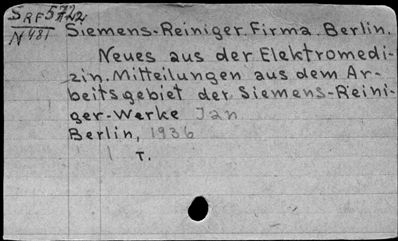 SRF5722
N481
Siemens-Reiniger. Firma. Berlin.
Neues aus der Elektromedi-
zin. Mitteilungen aus dem Ar-
beitsgebiet der Siemens-Reini-
ger-Werke Jan
Berlin, 1936
1 T.